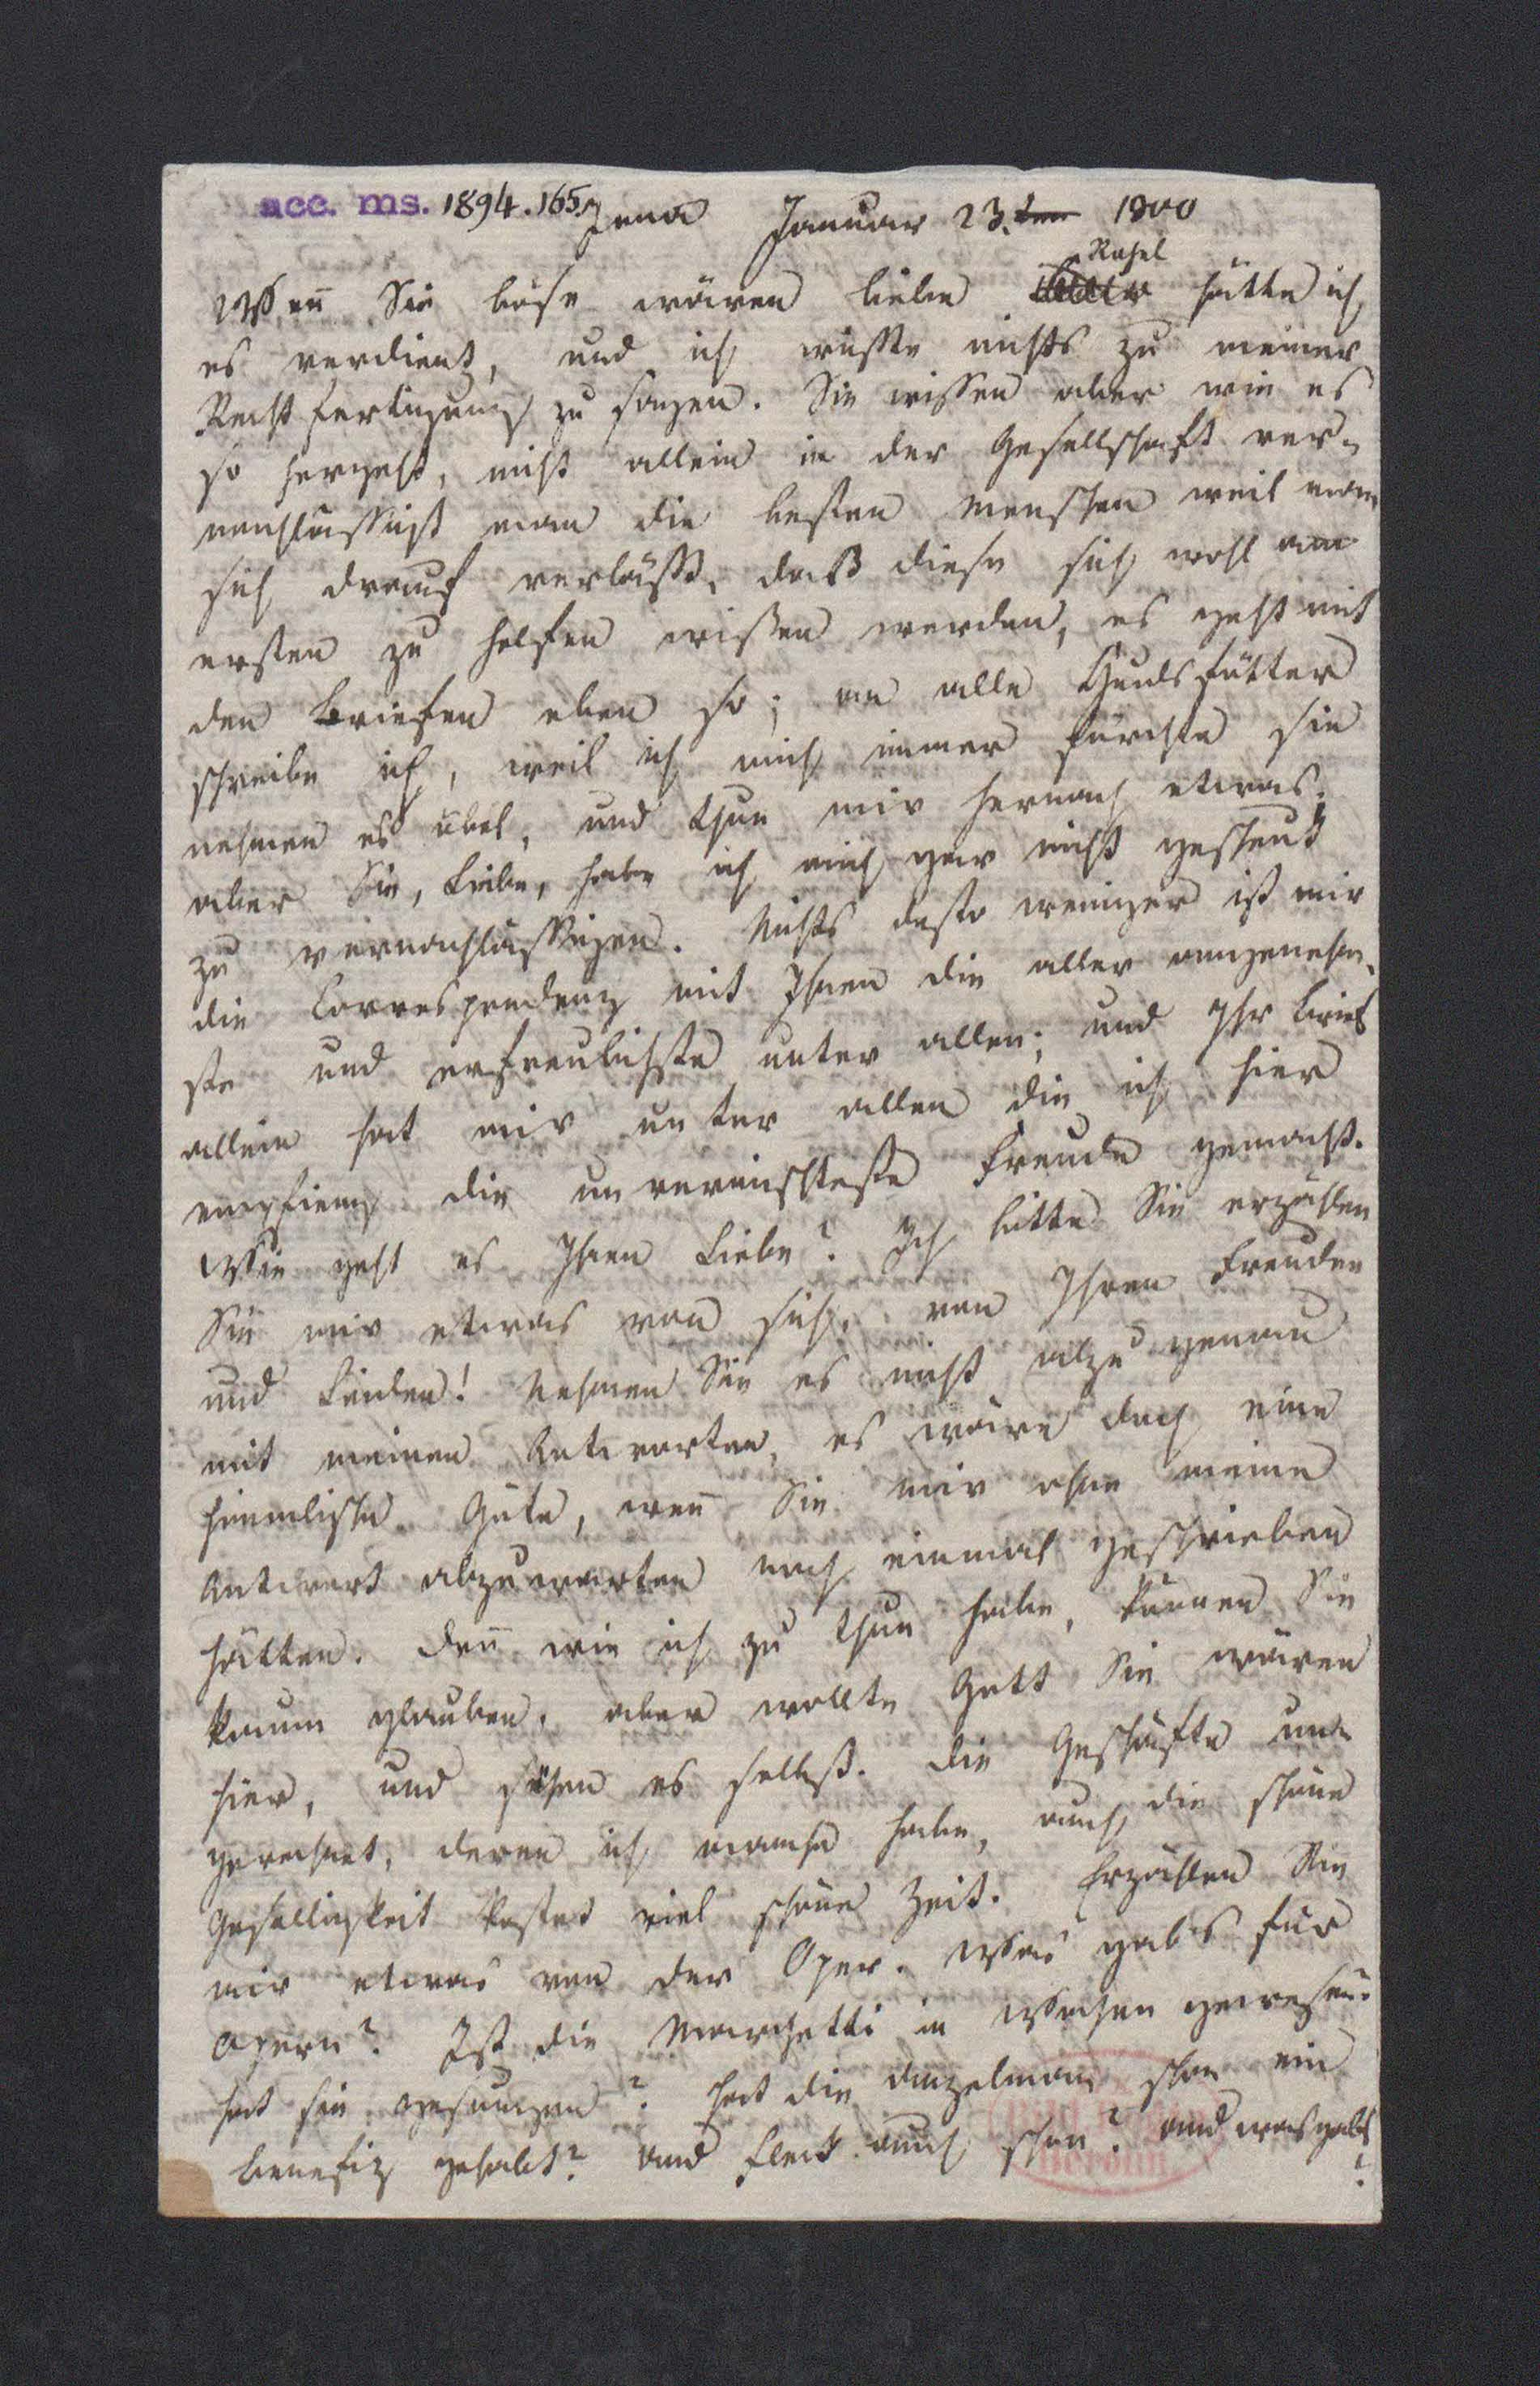 acc. ms. 1894.165.
Jena Januar 23. ten 1800
Rahel
Wenn Sie böse wären liebe hätte ich
es verdient, und ich wüßte nichts zu meiner
Rechtfertigung zu sagen. Sie wissen aber wie es
so hergeht, nicht allein in der Gesellschaft ver-
nachlässigt man die besten Menschen weil man
sich drauf verläßt, daß diese sich wohl am
ersten zu helfen wißen werden, es geht mit
den Briefen eben so; an alle Hundsfötter
schreibe ich, weil ich mich immer fürchte sie
nehmen es übel, und thun mir hernach etwas;
aber Sie, Liebe, habe ich mich gar nicht gescheut
zu vernachlässigen. Nichts desto weniger ist mir
die Correspondenz mit Ihnen die aller angenehm-
ste und erfreulichste unter allen; und Ihr Brief
allein hat mir unter allen die ich hier
empfieng die unvermischteste Freude gemacht.
Wie geht es Ihnen Liebe? Ich bitte Sie erzählen
Sie mir etwas von sich, von Ihren Freuden
und Leiden! Nehmen Sie es nicht alzu genau
mit meinen Antworten, es wäre doch eine
himmlische Güte, wenn Sie mir ohne meine
Antwort abzuwarten noch einmal geschrieben
hätten. Denn wie ich zu thun habe, können Sie
kaum glauben, aber wollte Gott Sie wären
hier, und sähen es selbst. Die Geschäfte un-
gerechnet, deren ich manche habe, auch die schöne
Geselligkeit kostet viel schöne Zeit. Erzählen Sie
mir etwas von der Oper. Was gab's für
Opern? Ist die Marchetti in Wochen gewesen?
hat sie gesungen? Hat die Unzelmann schon ein
Benefiz gehabt? und Fleck auch schon? und was gabs?